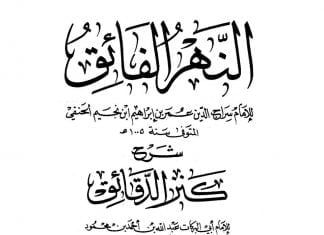 النهر الفائق
للإمام سراج الدين عمر بن إبراهيم ابن نجيم الحنفي
المتوفى سنة ١٠٠٥ هـ
شرح
كنز الدقائق
للإمام أبي البركات عبد الله بن أحمد بن محمود